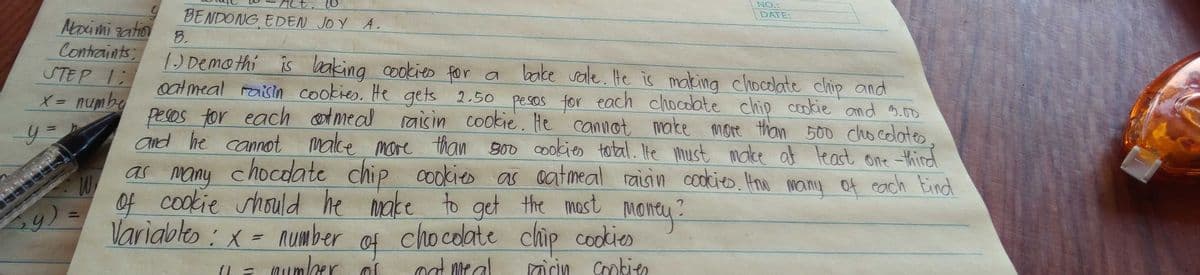 NO.:
DATE:
BENDONG, EDEN JOY A.
B.
1.) Demothi is baking cookies for a bake sale. He is making chocolate chip and
oatmeal raisin cookies. He gets 2.50 pesos for each chocolate chip cookie and 3.00
pesos for each oatmeal raisin cookie. He cannot make more than 500 chocolates,
and he cannot make more than 800 cookies total. He must make at least one-third
as many chocolate chip cookies as oatmeal raisin cookies. How many of each kind
of cookie should he make to get the most money?
Variables: x = number of chocolate chip cookies
y = number of oatmeal raisin cookies
Maximization
Contraints:
STEP 1:
x = numbe
y =
y) =